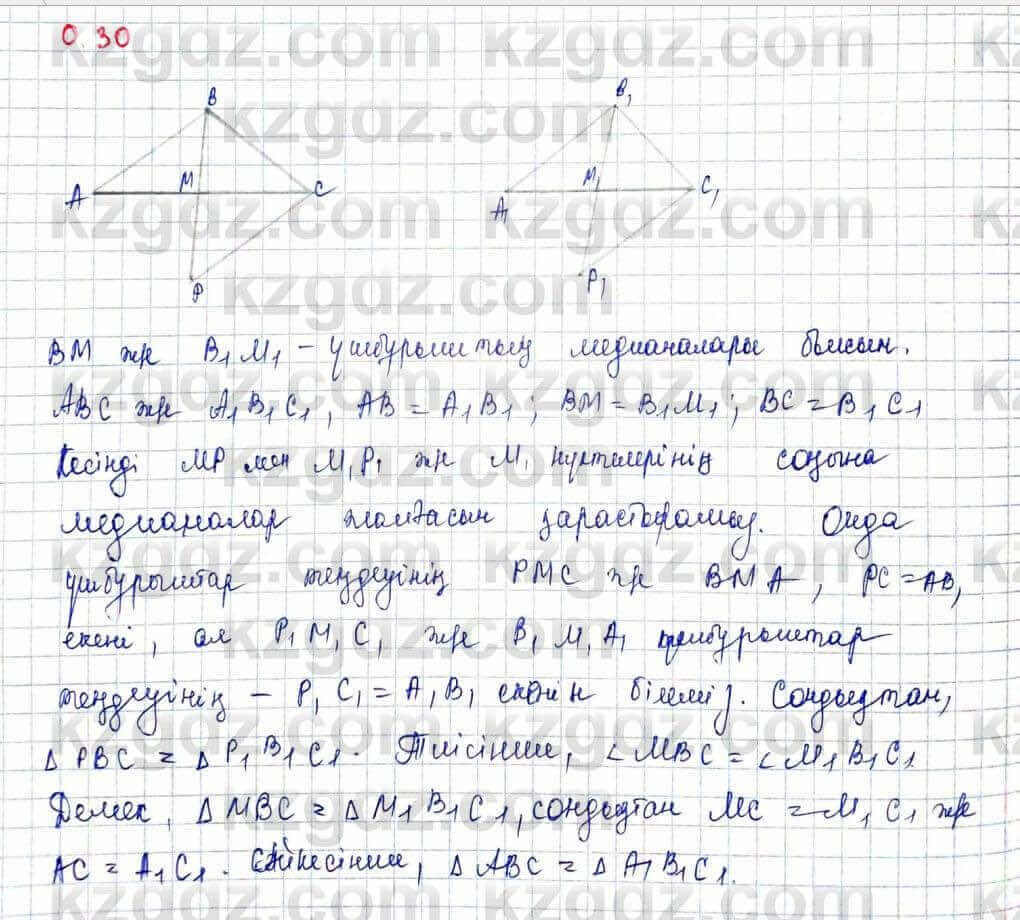 0.30
B
B₁
A
M
C
M₁
C₁
A₁
P
P₁
BM және B₁M₁ – үшбұрыштың медианалары болсын.
ABC және A₁B₁C₁, AB = A₁B₁; BM = B₁M₁; BC = B₁C₁
Кесінді MP мен M₁P₁ және M₁ нүктелерінің соңына
медианалар жалғасын қарастырамыз. Онда
үшбұрыштар теңдеуінің PMC және BMA, PC = AB,
екені, ал P₁M₁C₁ және B₁M₁A₁ үшбұрыштар
теңдеуінің – P₁C₁ = A₁B₁ екенін білеміз. Сондықтан,
Δ PBC = Δ P₁B₁C₁. Тиісінше, ∠MBC = ∠M₁B₁C₁
Демек, Δ MBC = Δ M₁B₁C₁, сондықтан MC = M₁C₁ және
AC = A₁C₁. Сәйкесінше, Δ ABC = Δ A₁B₁C₁.
kzgdz.com